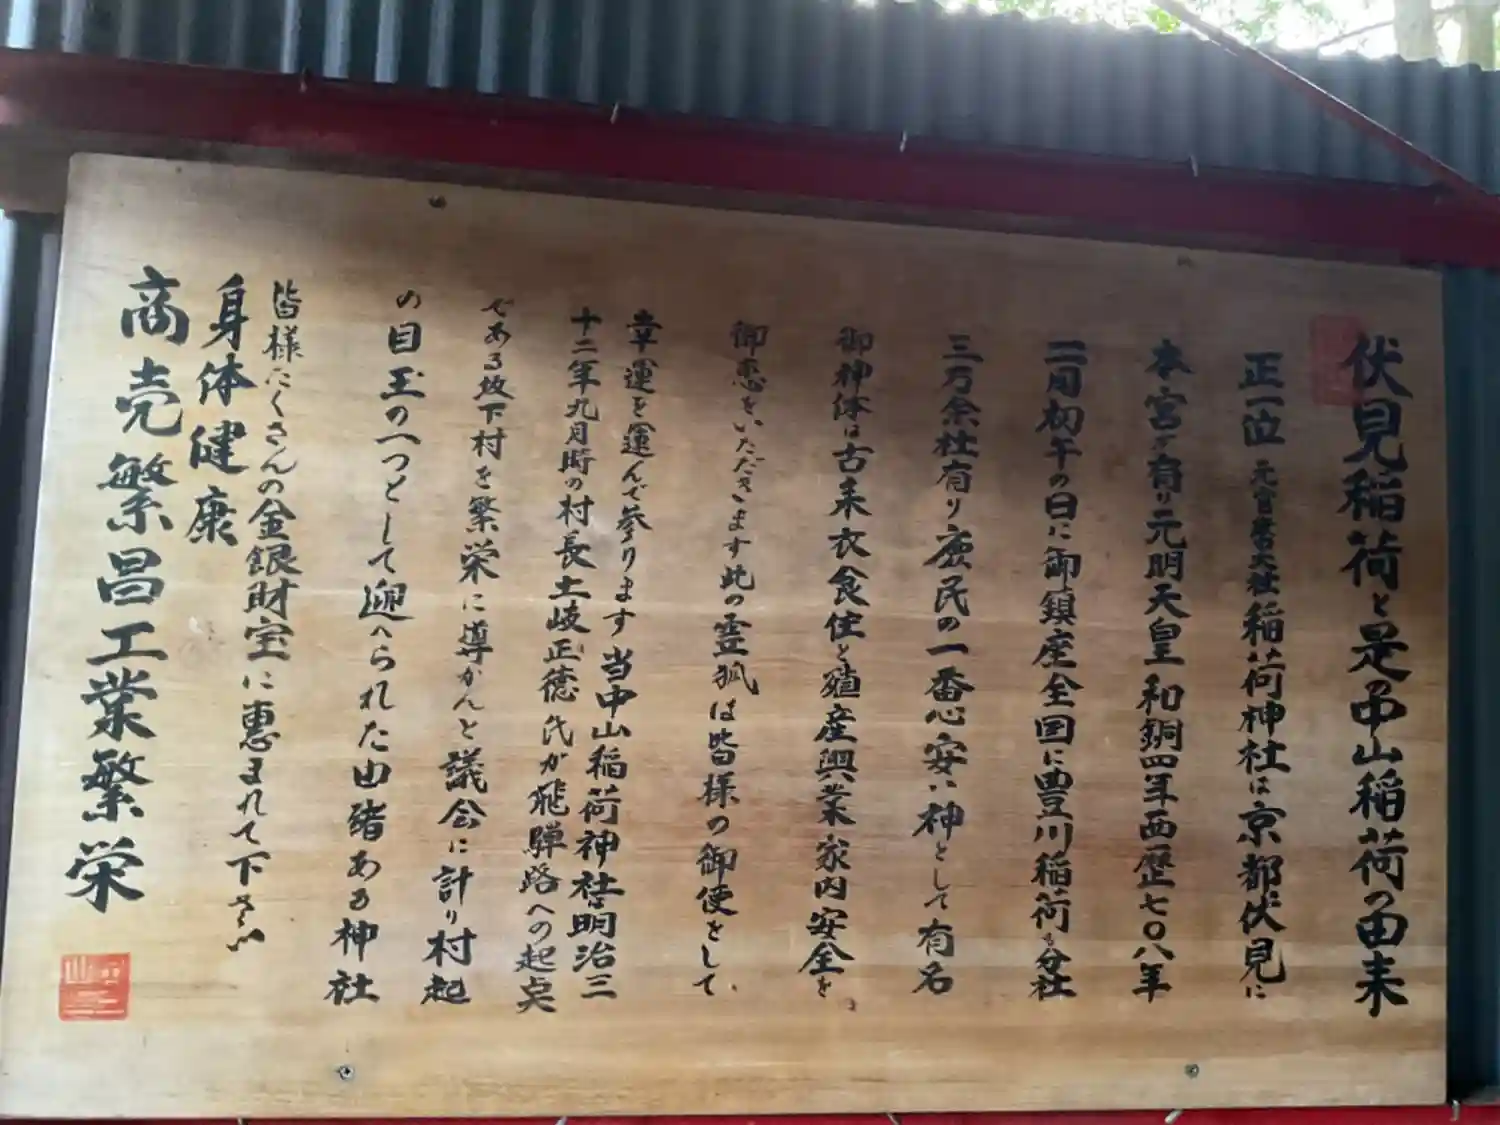 伏見稲荷と是の中山稲荷の由来
正一位 元官幣大社稲荷神社は京都伏見に
本宮が有り元明天皇和銅四年西歴七〇八年
二月初午の日に御鎮座全国に豊川稲荷も分社
三万余社有り庶民の一番心安い神として有名
御神体は古来衣食住と殖産興業家内安全を
御恵をいただきます此の霊狐は皆様の御便をして
幸運を運んで参ります当中山稲荷神社明治三
十二年九月時の村長土岐正徳氏が飛騨路への起点
である坂下村を繁栄に導かんと議会に計り村起
の目玉の一つとして迎へられた由緒ある神社
皆様たくさんの金銀財宝に恵まれて下さい
身体健康
商売繁昌工業繁栄